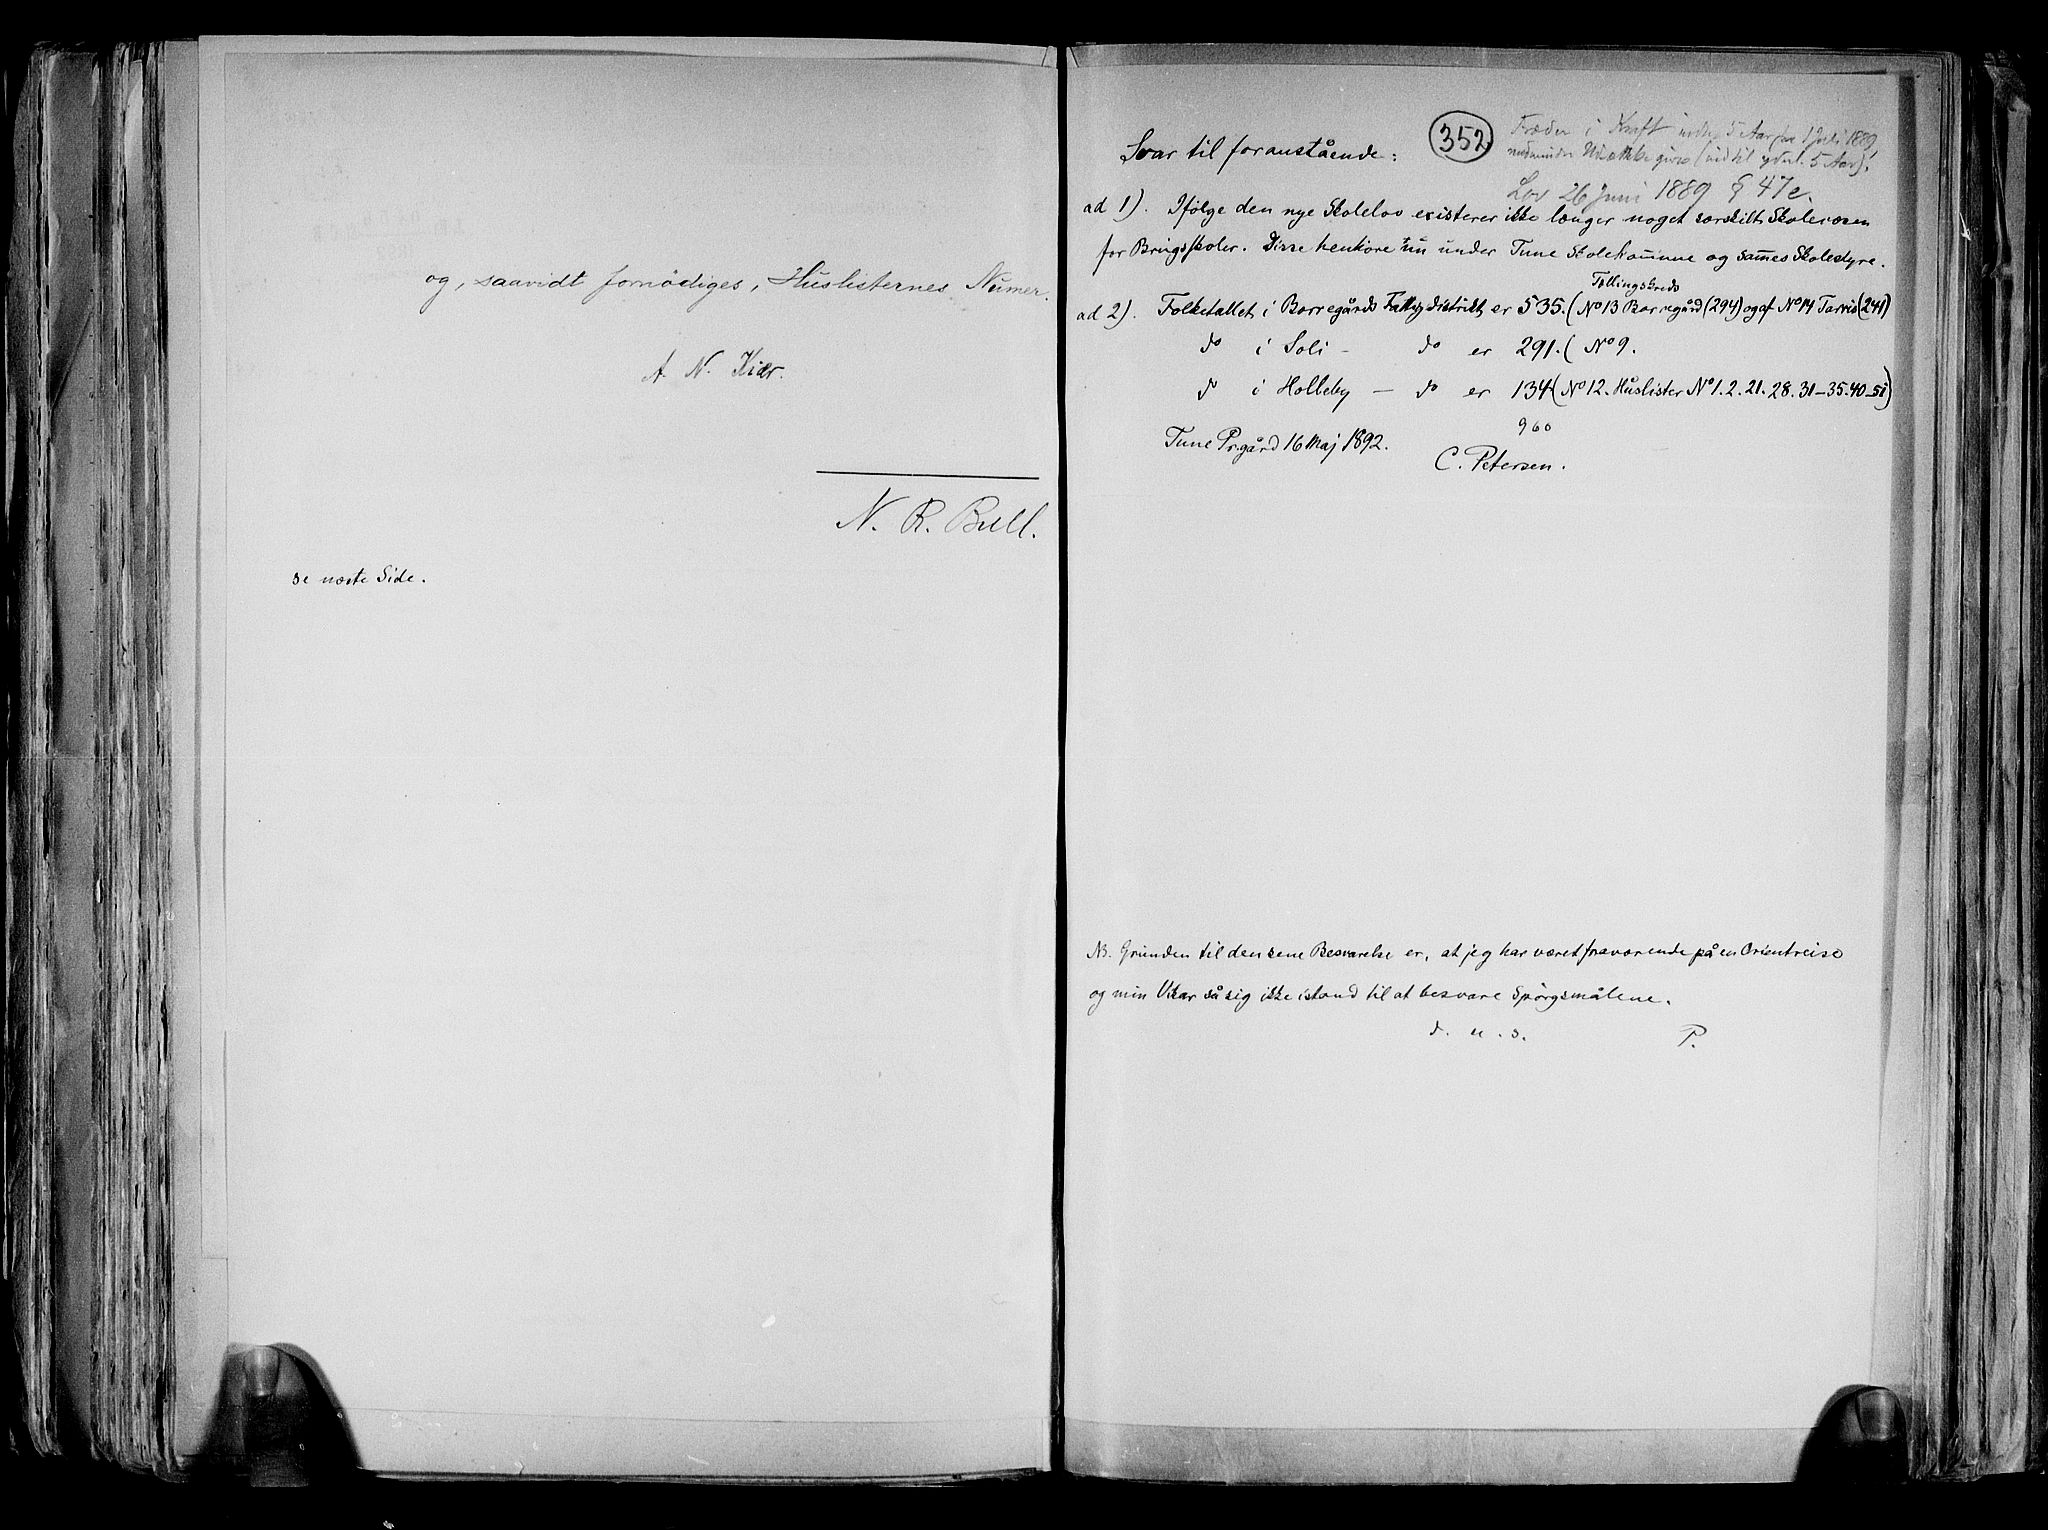 og, saavidt fornödiges, Huslisternes Numer.
A. N. Kiær.
N. R. Bull.
se næste Side.
352
Træder i Kraft inden 5 Aar fra 1 Juli 1889,
(indtil yderl. 5 Aar).
Lov 26 Juni 1889 § 47e.
Svar til foranstående:
ad 1). Ifölge den nye Skolelov existerer ikke længer noget særskilt Skolevæsen
for Brugsskoler. Disse henhöre nu under Tune Skolekommune og sammes Skolestyre.
Tællingskreds
ad 2). Folketallet i Borregårds Fattigdistrikt er 535. (No 13 Borregård (294) og af No 14 Tarvis (241)
do i Soli - do er 291. (No 9.
do i Holleby - do er 134 (No 12. Huslister No 1. 2. 21. 28. 31-35. 40-51)
960
Tune Prgård 16 Maj 1892.
C. Petersen.
NB. Grunden til den sene Besvarelse er, at jeg har været fraværende på en Orientreise
og min Vikar så sig ikke istand til at besvare Spörgsmålene.
d. u. s. P.